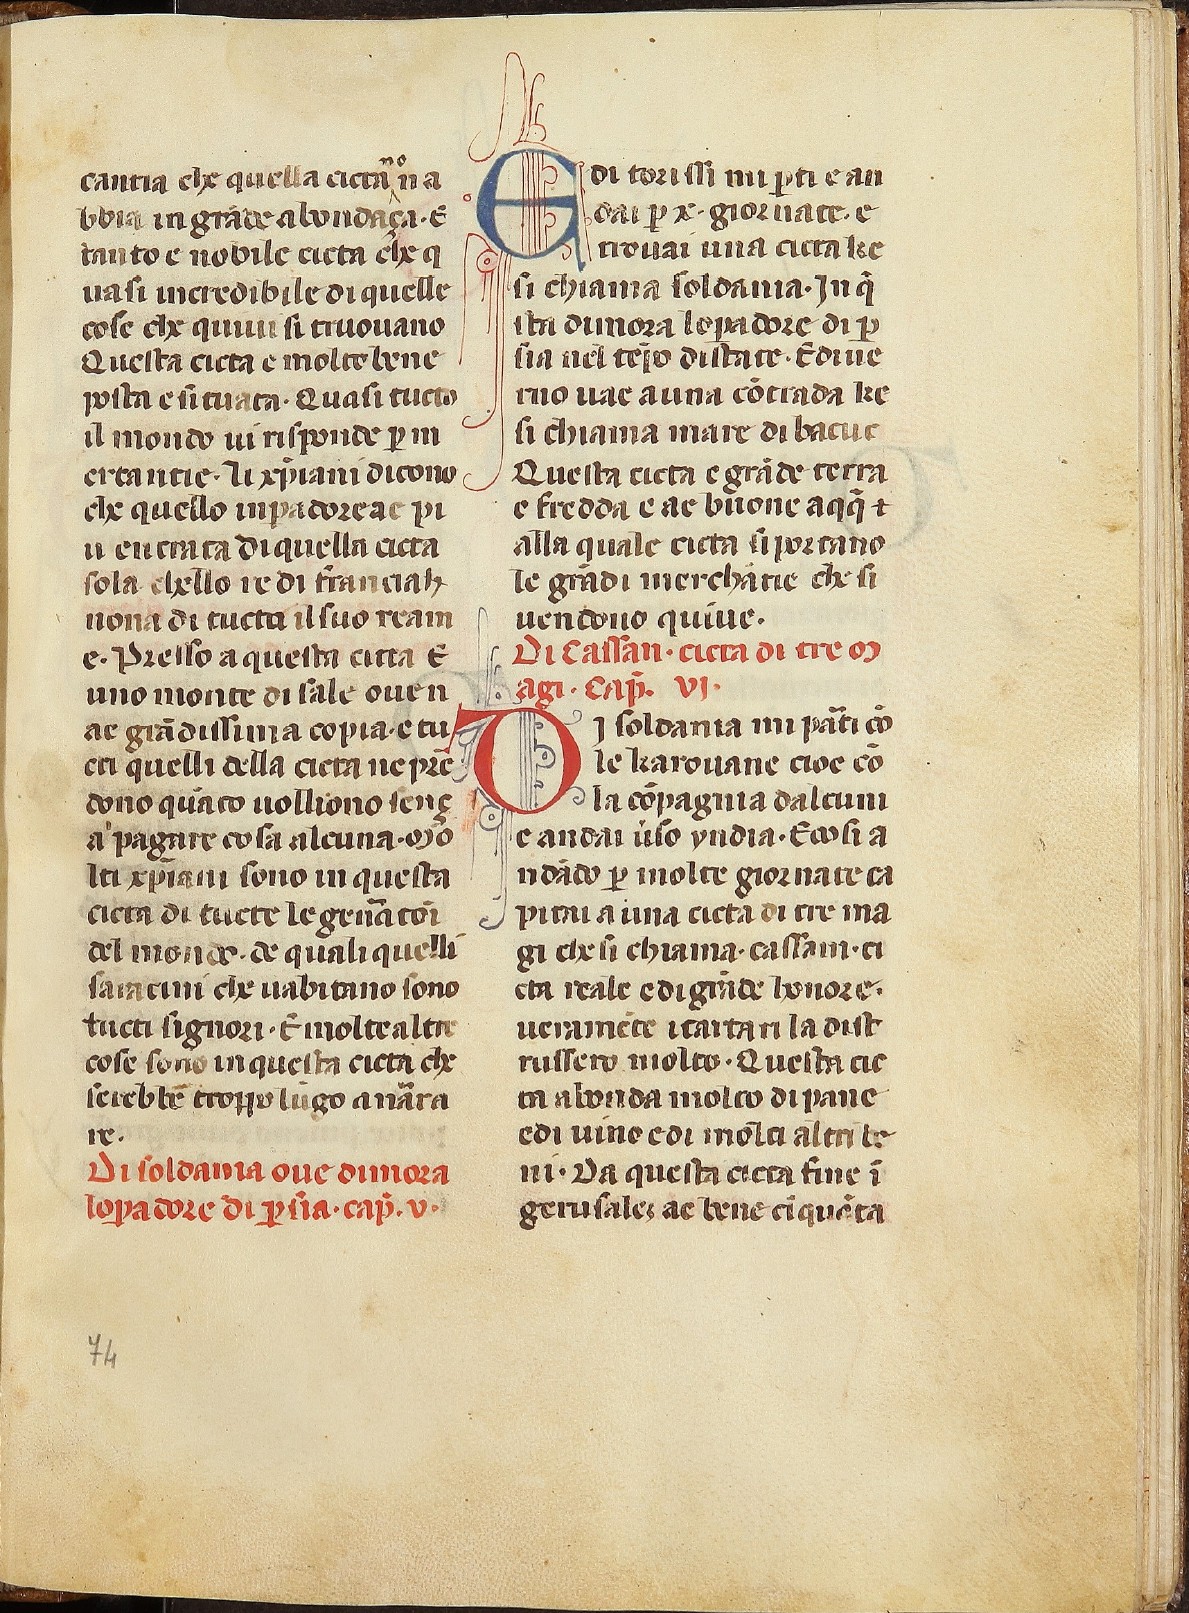 cantia che quella cictā no n̄ a
bbia in grāde abondaça· E
tanto e nobile cicta ch̄e q
uasi incredibile di quelle
cose che quiui si truouano
Questa cicta e molte bene
posta e situata· Quasi tucto
il mondo ui risponde ꝑ m
ercantie· Li xp̄iani dicono
che quello inpadore ae pi
u entrata di quella cicta
sola chello re di francia h
nona di tucta il suo ream
e· Presso a questa citta E
uno monte di sale oue n
ae grādissima copia· e tu
cti quelli della cicta ne prē
dono quāto uolliono senç
a pagare cosa alcuna· Mo
lti xp̄iani sono in questa
cicta di tucte le gen̄atōi
del mondo· de quali quelli
saracini che uabitano sono
tucti signori· E molte altre
cose sono in questa cicta che
serebbē troppo lūgo a nāra
re·
Di soldania oue dimora
lopadore di ꝑsia· cap̄· v·
E di torissi mi ꝑti e an
dai ꝑ x· giornate· e
trouai una cicta ke
si chiama soldania· In q̄
sta dimora lopadore di ꝑ
sia nel tēpo distate· E di ue
rno uae a una cōtrada ke
si chiama mare di bacuc
Questa cicta e grāde terra
e fredda e ae buone aqq̄ ⁊
alla quale cicta si portano
le grādi merchātie che si
uendono quiue·
Di Cassan· cicta di tre M
agi· Cap̄· VI·
DI soldania mi pāti cō
le karouane cioe cō
la cōpagnia dalcuni
e andai ūso yndia· E cosi a
ndādo ꝑ molte giornate ca
pitai a una cicta di tre ma
gi che si chiama· cassam· ci
cta reale e di grāde honore·
ueramēte i tartari la dist
russero molto· Questa cic
ta abonda molto di pane
e di uino e di molti altri be
ni· Da questa cicta fine ī
gerusaleꝫ ae bene ci quāta
74